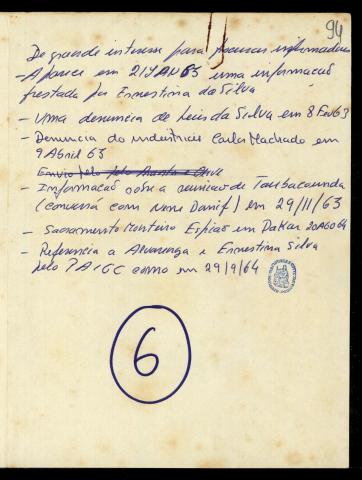 94
De grande interesse para procurar informadores
- Aparece em 21JAN63 uma informação
prestada por Ernestina da Silva
- Uma denuncia de Luis da Silva em 8Fev63
- Denuncia do industrial Carlos Machado em
9 Abril 63
Envio pelo
- Informação sobre a reunião de Tambacounda
(conversa com um Danif) em 29/11/63
- Sacramento Monteiro Espião em Dakar 20AGO64
- Referencia a Alvarenga e Ernestina Silva
pelo PAIGC como em 29/9/64
6